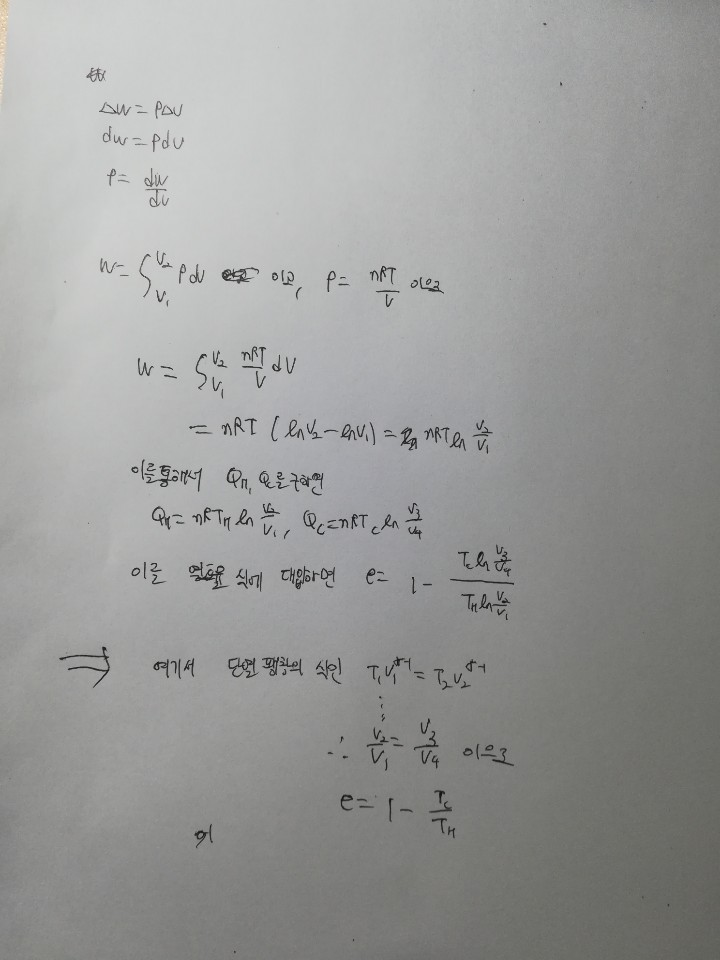 ΔW = PΔV
dW = PdV
P = dW/dV
W = ∫_{V₁}^{V₂} PdV 이고, P = nRT/V 이므로
W = ∫_{V₁}^{V₂} nRT/V dV
= nRT (lnV₂ - lnV₁) = nRT ln V₂/V₁
이를통해서 Q_H, Q_C를구하면
Q_H = nRT_H ln V₂/V₁, Q_C = nRT_C ln V₃/V₄
이를 식에 대입하면 e = 1 - (T_C ln V₃/V₄)/(T_H ln V₂/V₁)
⇒ 여기서 단열팽창의 식인 T₁V₁^{γ-1} = T₂V₂^{γ-1}
⋮
∴ V₂/V₁ = V₃/V₄ 이므로
e = 1 - T_C/T_H
이